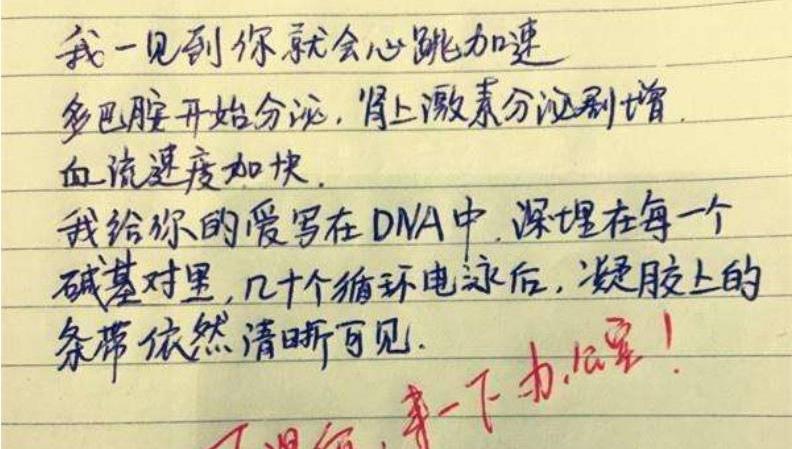 我一见到你就会心跳加速
多巴胺开始分泌，肾上激素分泌剧增．
血流速度加快．
我给你的爱写在DNA中．深埋在每一个
碱基对里，几十个循环电泳后，凝胶上的
条带依然清晰可见．
来一下办公室！